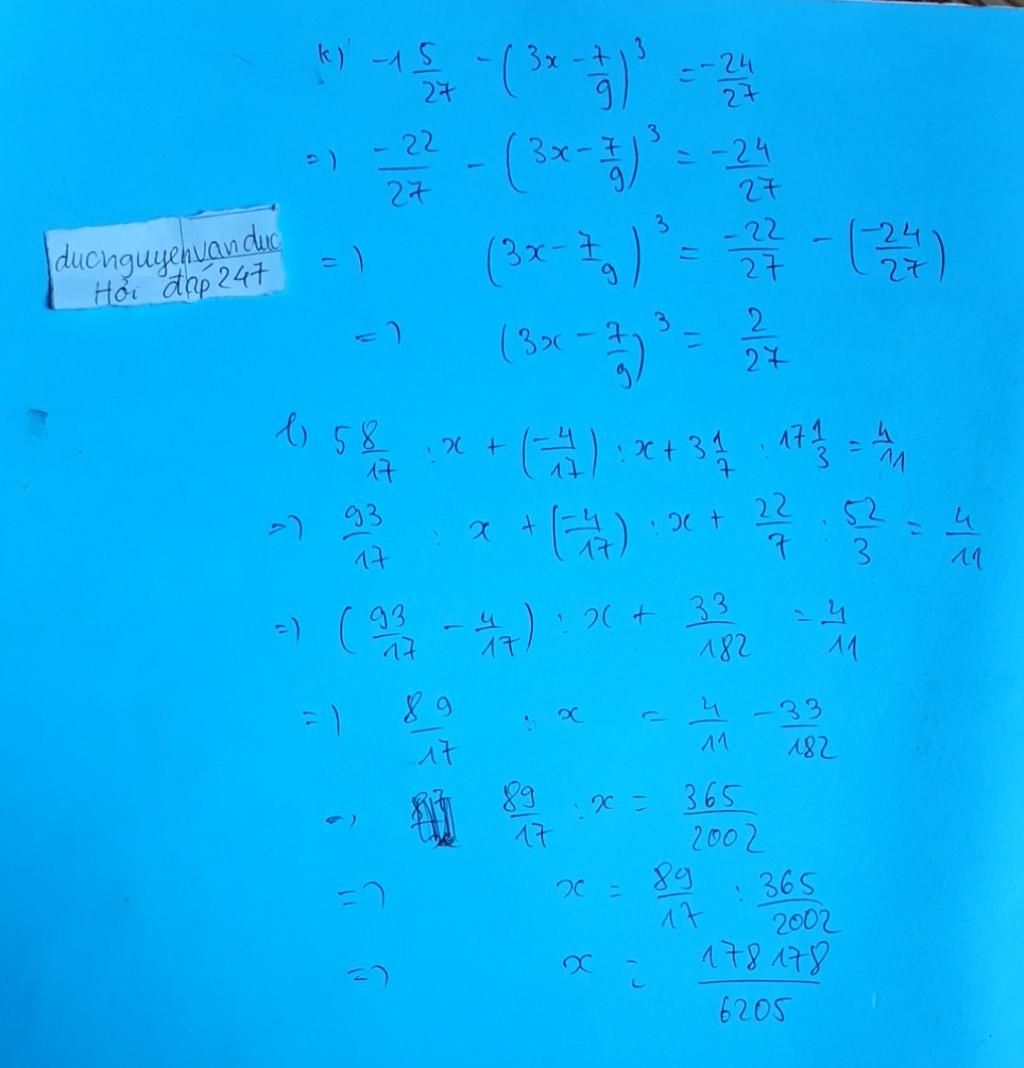 k) -1 5/27 - (3x - 7/9)³ = -24/27
=) -22/27 - (3x - 7/9)³ = -24/27
ducnguyenvanduc
Hỏi đáp 247
=) (3x - 7/9)³ = -22/27 - (-24/27)
=) (3x - 7/9)³ = 2/27
l) 5 8/17 : x + (-4/17) : x + 3 1/7 : 17 1/3 = 4/11
=) 93/17 : x + (-4/17) : x + 22/7 : 52/3 = 4/11
=) (93/17 - 4/17) : x + 33/182 = 4/11
=) 89/17 : x = 4/11 - 33/182
=) 89/17 : x = 365/2002
=) x = 89/17 : 365/2002
=) x = 178178/6205